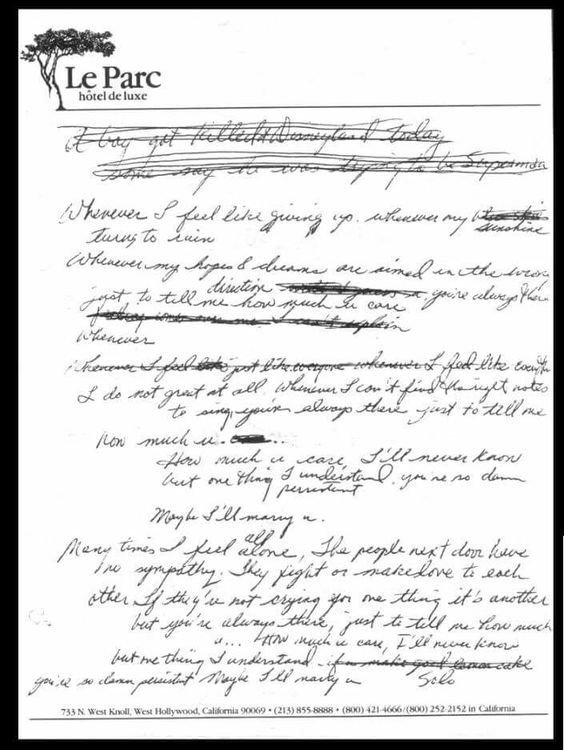 Le Parc
hôtel de luxe
A boy got killed at Disneyland today
some say he was trying to be Superman
Whenever I feel like giving up. whenever my
sunshine
turns to rain
Whenever my hopes & dreams are aimed in the wrong
direction you're always there
just, to tell me how much u care
Whenever
Whenever I feel like just like everyone whenever I feel like
I do not great at all. Whenever I can't find the right notes
to sing, you're always there just to tell me
How much u ...
How much u care, I'll never know
but one thing I understand, you're so damn
persistent
Maybe I'll marry u.
all
Many times I feel alone, The people next door have
no sympathy. They fight or make love to each
other If they're not crying for one thing it's another
but you're always there, just to tell me how much
u... How much u care, I'll never know
but one thing I understand u make good lemon cake
you're so damn persistent Maybe I'll marry u Solo
733 N. West Knoll, West Hollywood, California 90069 • (213) 855-8888 • (800) 421-4666/(800) 252-2152 in California